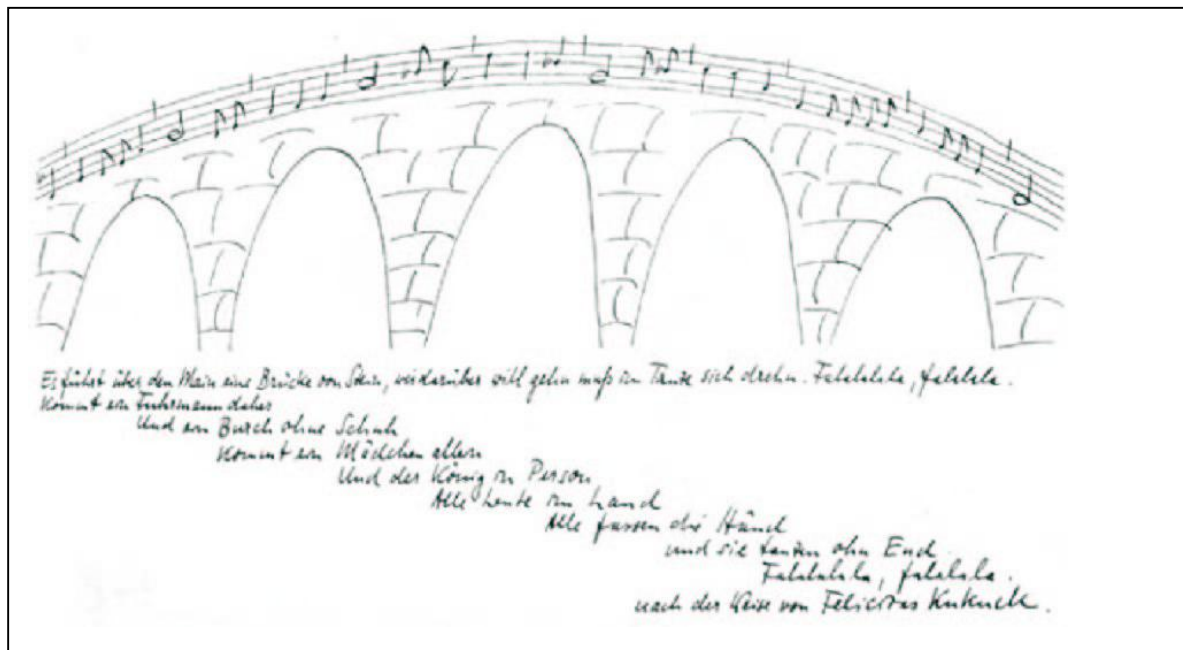 Es führt über den Main eine Brücke von Stein, wer darüber will gehn muß im Tanze sich drehn. Falalalala, falalala.
Kommt ein Fuhrmann daher
Und ein Bursch ohne Schuh
Kommt ein Mädchen allein
Und der König in Person
Alle Leute im Land
Alle fassen die Händ
und sie tanzen ohn End
Falalalala, falalala.
nach der Weise von Felicitas Kukuck.